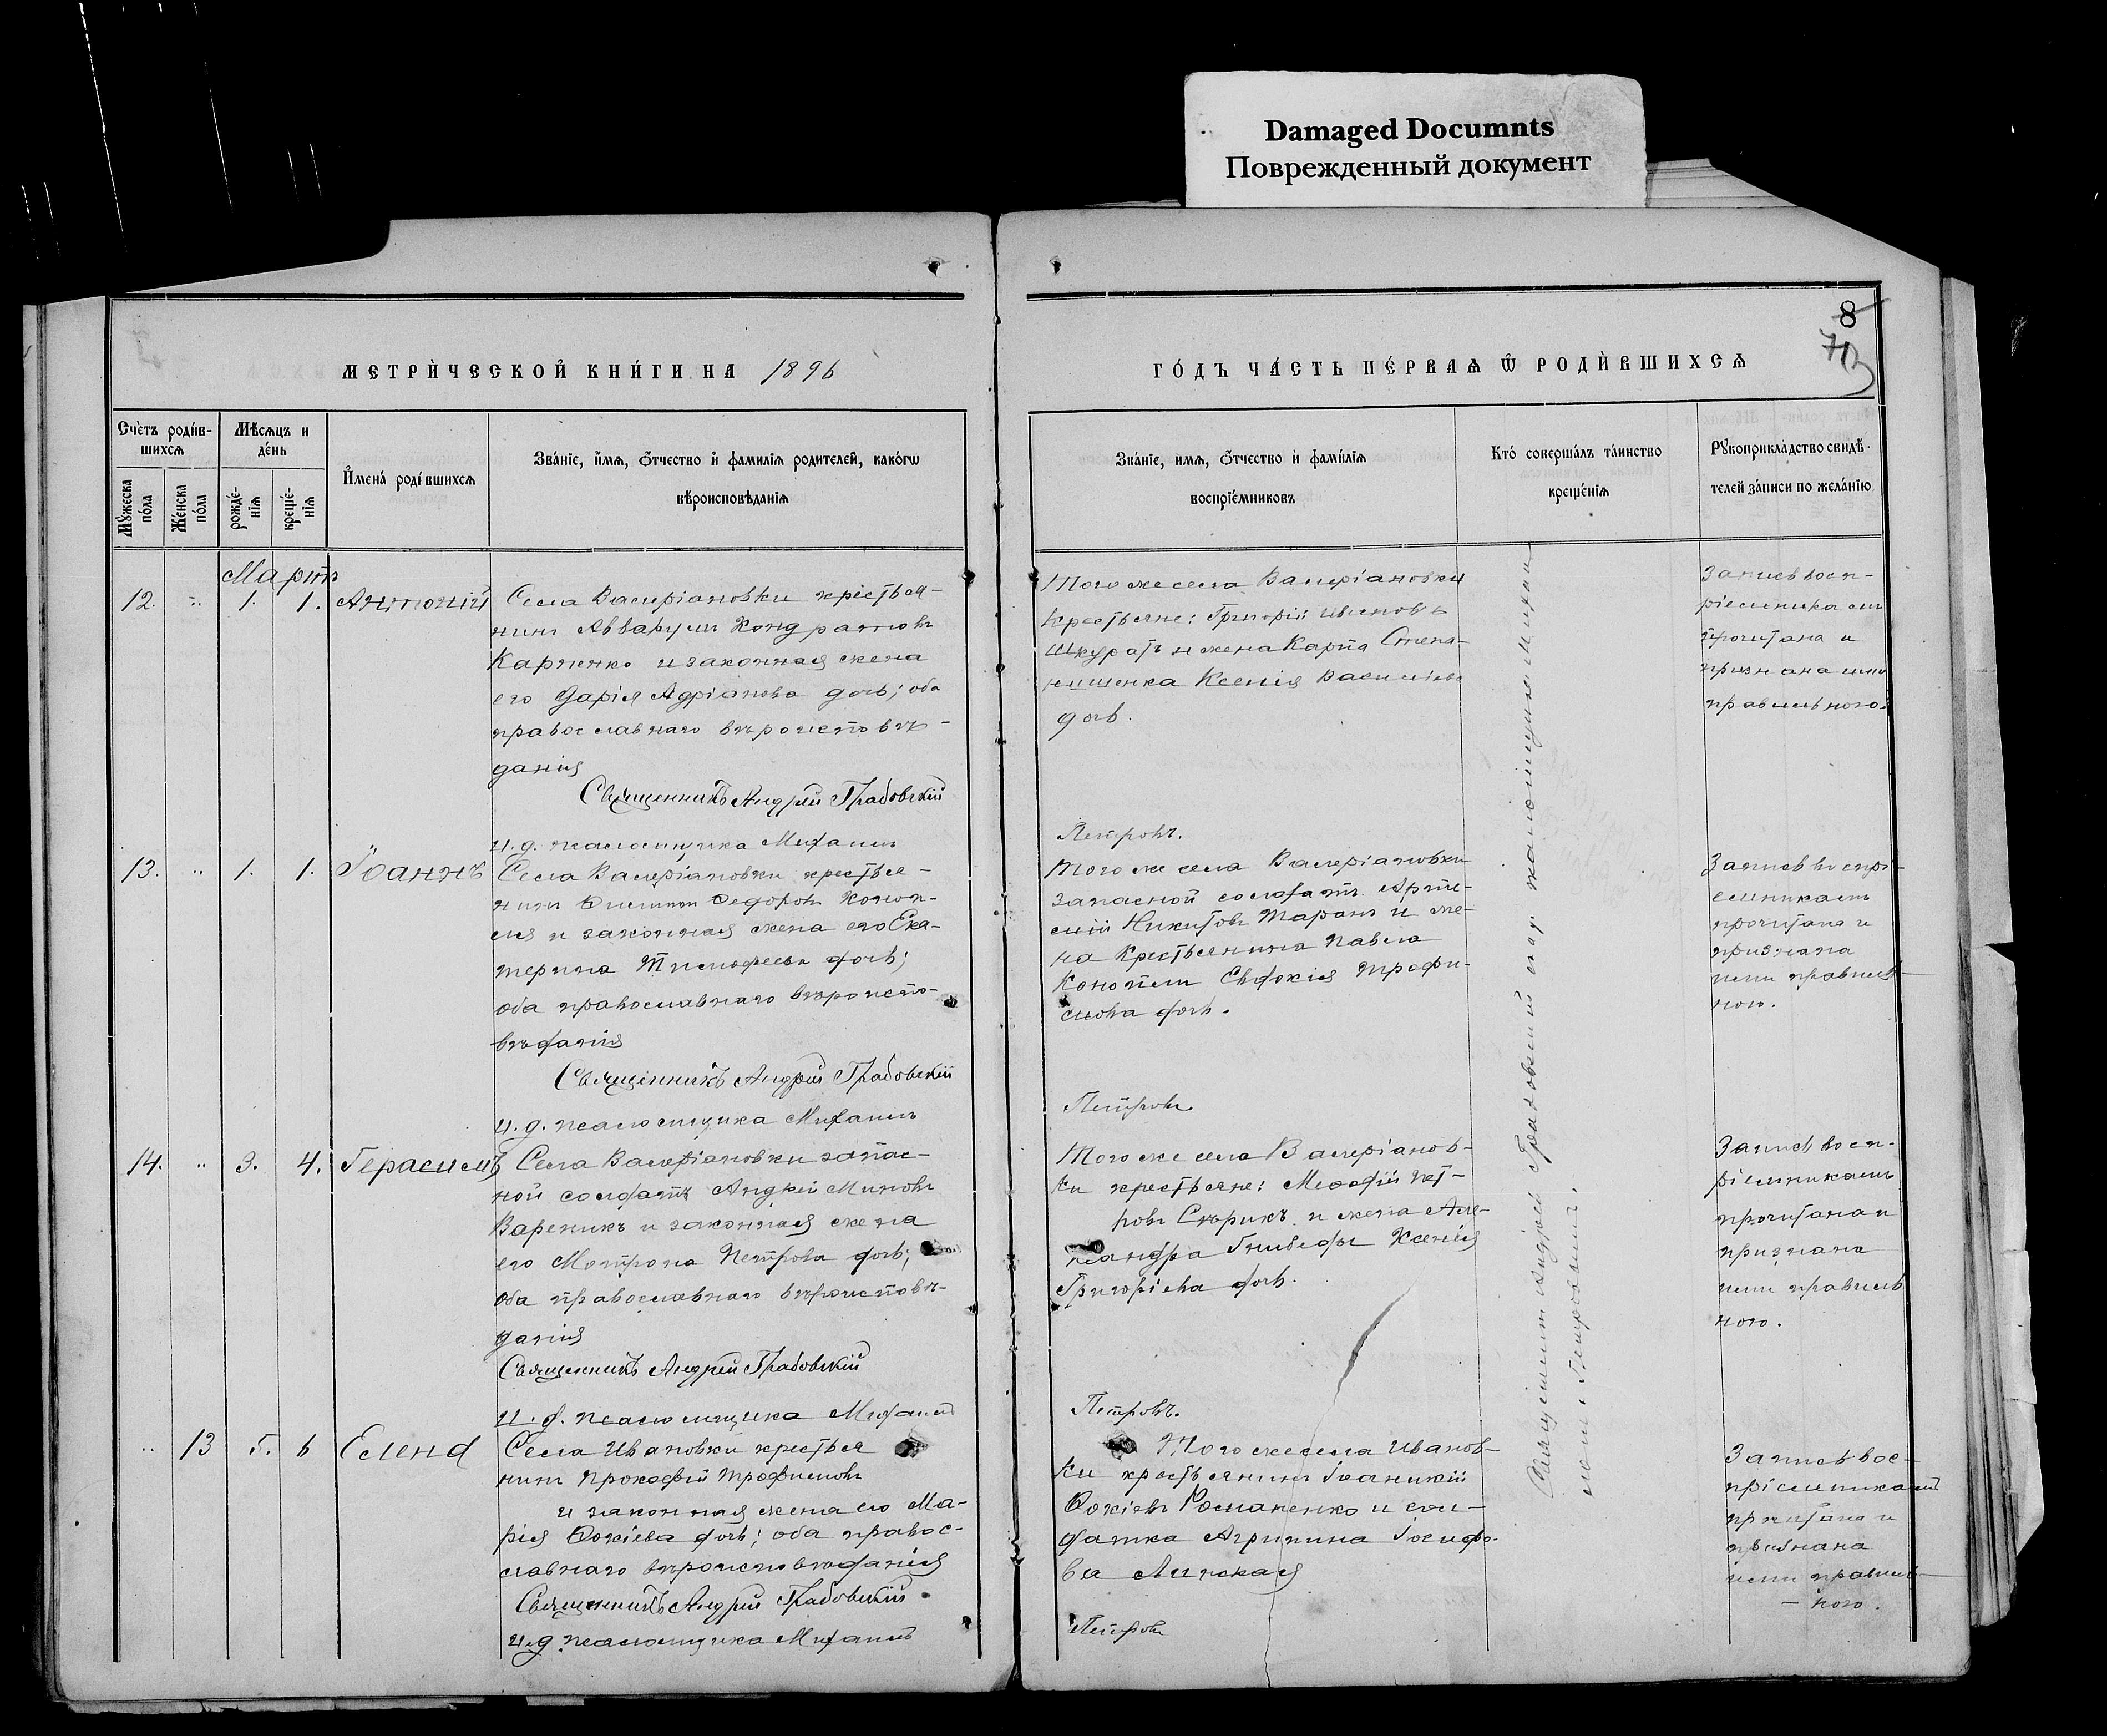 Damaged Documnts
Поврежденный документ
8
МЕТРИЧЕСКОЙ КНИГИ НА 1896
ГОДЪ ЧАСТЬ ПЕРВАѦ Ѿ РОДИВШИХСѦ
Счетъ родив-
шихсѧ
Мѣсѧцъ и
день
Мꙋжеска
пола
Женска
пола
рожде-
нїѧ
креще-
нїѧ
Имена родившихсѧ
Званїе, имѧ, ѻтчество и фамилїѧ родителей, какогѡ
вѣроисповѣданїѧ
Званїе, имѧ, ѻтчество и фамилїѧ
воспрїемниковъ
Кто совершалъ таинство
крещенїѧ
Рꙋкоприкладство свидѣ-
телей записи по желанїю
Мартъ
12. " 1. 1. Антоній
Села Валеріановки крестья-
нинъ Аввакумъ Кондратовъ
Карпенко и законная жена
его Дарія Адріанова дочь; оба
православнаго вѣроисповѣ-
данія
Священникъ Андрей Грабовскій
и. д. псаломщика Михаилъ
Того же села Валеріановки
крестьяне: Григорій Ивановъ
Шкуратъ и жена Карпа Степа-
нищенка Ксенія Васильева
дочь.
Петровъ.
Запись восп-
ріемникамъ
прочитана и
признана ими
правильною.
13. " 1. 1. Іоаннъ
Села Валеріановки крестья-
нинъ Филиппъ Федоровъ Коноп-
ля и законная жена его Ека-
терина Тимофеева дочь;
оба православнаго вѣроиспо-
вѣданія
Священникъ Андрей Грабовскій
и. д. псаломщика Михаилъ
Того же села Валеріановки
запасной солдатъ Арте-
мій Никитовъ Таранъ и же-
на крестьянина Павла
Конопли Евдокія Трофи-
мова дочь.
Петровъ
Запись воспрі-
емникамъ
прочитана и
признана
ими правиль-
ною.
14. " 3. 4. Герасимъ
Села Валеріановки запас-
ной солдатъ Андрей Миновъ
Вареникъ и законная жена
его Мотрона Петрова дочь;
оба православнаго вѣроисповѣ-
данія
Священникъ Андрей Грабовскій
и. д. псаломщика Михаилъ
Того же села Валеріанов-
ки крестьяне: Меѳодій Пет-
ровъ Сѣрикъ и жена Але-
ксандра Ксенія
Григоріева дочь.
Петровъ.
Запись восп-
ріемникамъ
прочитана и
признана
ими правиль
ною.
" 13 5. 6 Елена
Села Ивановки крестья
нинъ Прокофій Трофимовъ
и законная жена его Ма-
рія Фокіева дочь; оба правос-
лавнаго вѣроисповѣданія
Священникъ Андрей Грабовскій
и. д. псаломщика Михаилъ
Того же села Иванов-
ки крестьянинъ Іоаникій
Фокіевъ Романенко и сол-
датка Агрипина Іосифо-
ва Липская
Петровъ
Запись вос-
пріемникамъ
прочитана и
признана
ими правиль-
ною.
Священникъ Андрей Грабовскій и. д. псаломщика Михаилъ
Петровъ